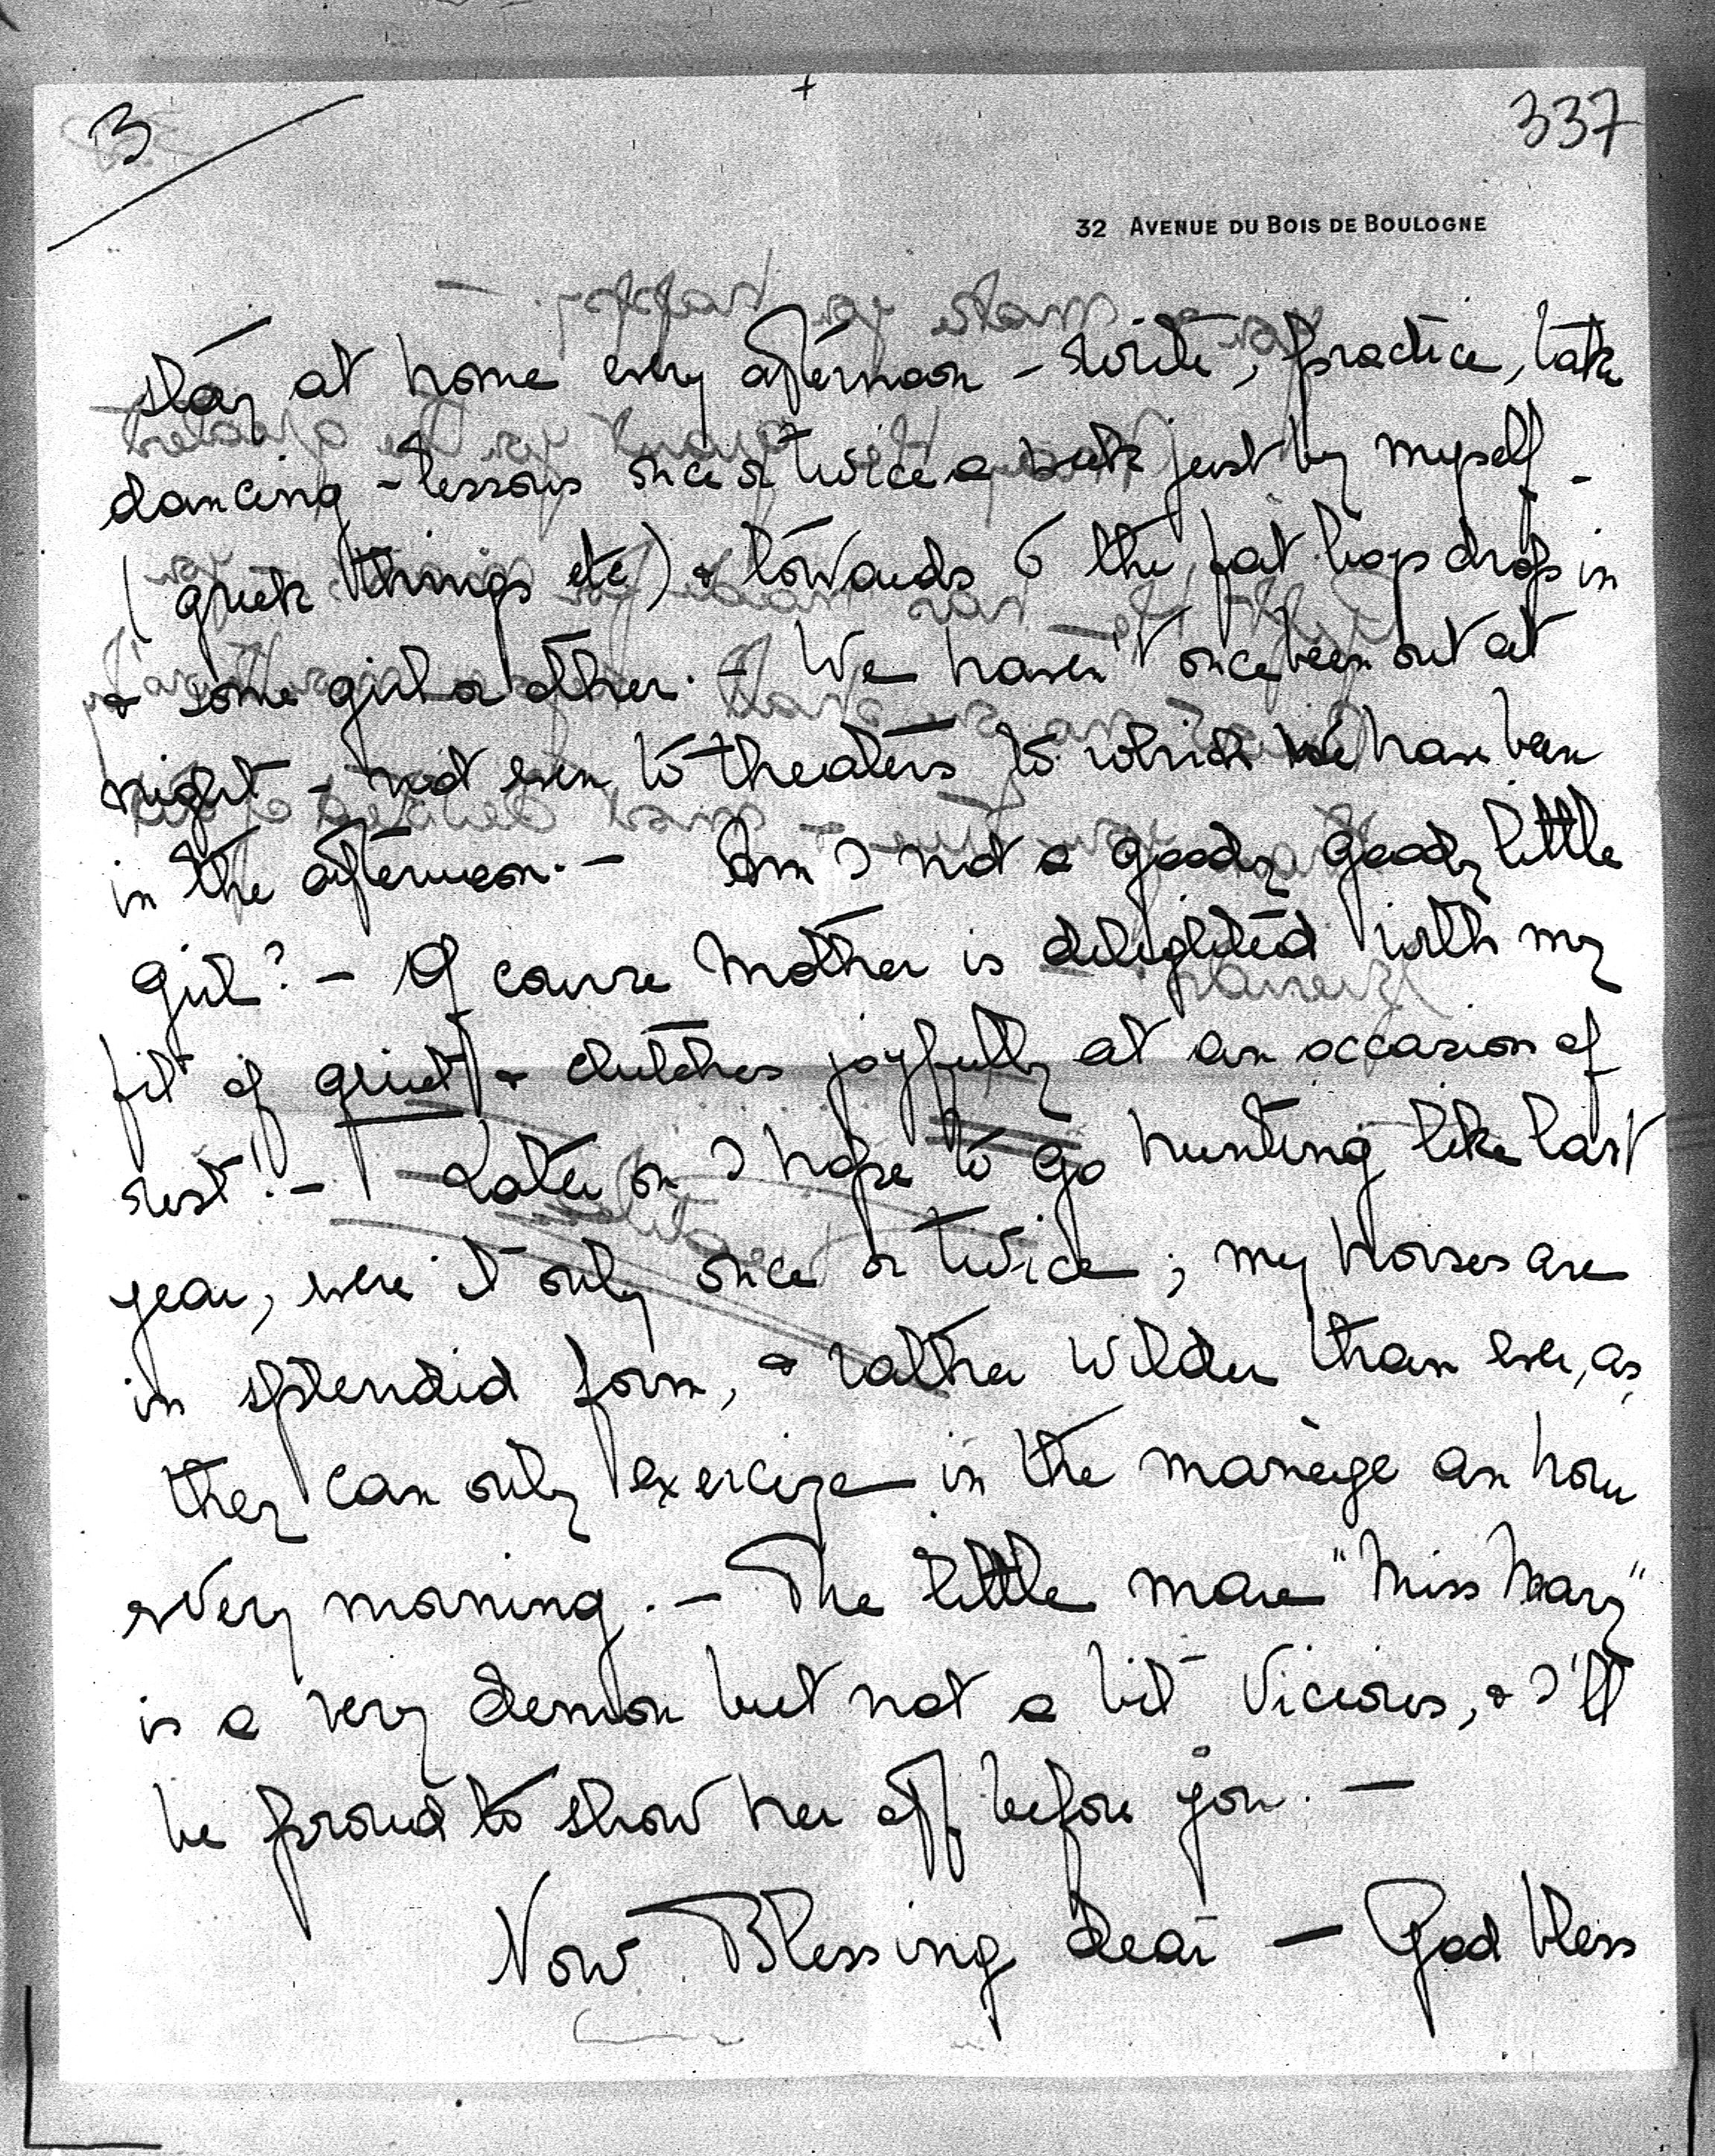 3
337
32 AVENUE DU BOIS DE BOULOGNE
stay at home every afternoon – write, practice, take
dancing-lessons once or twice a week just by myself –
(greek things etc) & towards 6 the fat drops in
& some girl or other. – We haven't once been out at
night – not even to theaters to which we have been
in the afternoon. – Am I not a goody goody little
girl? – Of course Mother is delighted with my
fit of quiet & clutches joyfully at an occasion of
rest! – Later on I hope to go hunting like last
year, were it only once or twice; my horses are
in splendid form, & rather wilder than ever, as
they can only exercize in the manège an hour
every morning. – The little mare "Miss Mary"
is a very demon but not a bit vicious, & I'll
be proud to show her off before you. –
Now Blessing dear – God bless